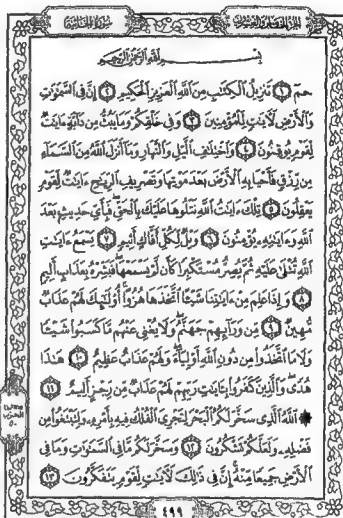 الجزء الخامس والعشرون سورة الجاثية
بسم الله الرحمن الرحيم
حم ١ تنزيل الكتب من الله العزيز الحكيم ٢ إن في السموت
والأرض لءايت للمؤمنين ٣ وفي خلقكم وما يبث من دابة ءايت
لقوم يوقنون ٤ واختلف اليل والنهار وما أنزل الله من السماء
من رزق فأحيا به الأرض بعد موتها وتصريف الريح ءايت لقوم
يعقلون ٥ تلك ءايت الله نتلوها عليك بالحق فبأي حديث بعد
الله وءايته يؤمنون ٦ ويل لكل أفاك أثيم ٧ يسمع ءايت
الله تتلى عليه ثم يصر مستكبرا كأن لم يسمعها فبشره بعذاب أليم
٨ وإذا علم من ءايتنا شيئا اتخذها هزوا أولئك لهم عذاب
مهين ٩ من ورائهم جهنم ولا يغني عنهم ما كسبوا شيئا
ولا ما اتخذوا من دون الله أولياء ولهم عذاب عظيم ١٠ هذا
هدى والذين كفروا بءايت ربهم لهم عذاب من رجز أليم ١١
۞ الله الذي سخر لكم البحر لتجري الفلك فيه بأمره ولتبتغوا من
فضله ولعلكم تشكرون ١٢ وسخر لكم ما في السموت وما في
الأرض جميعا منه إن في ذلك لءايت لقوم يتفكرون ١٣
الحزب
٥٠
٤٩٩